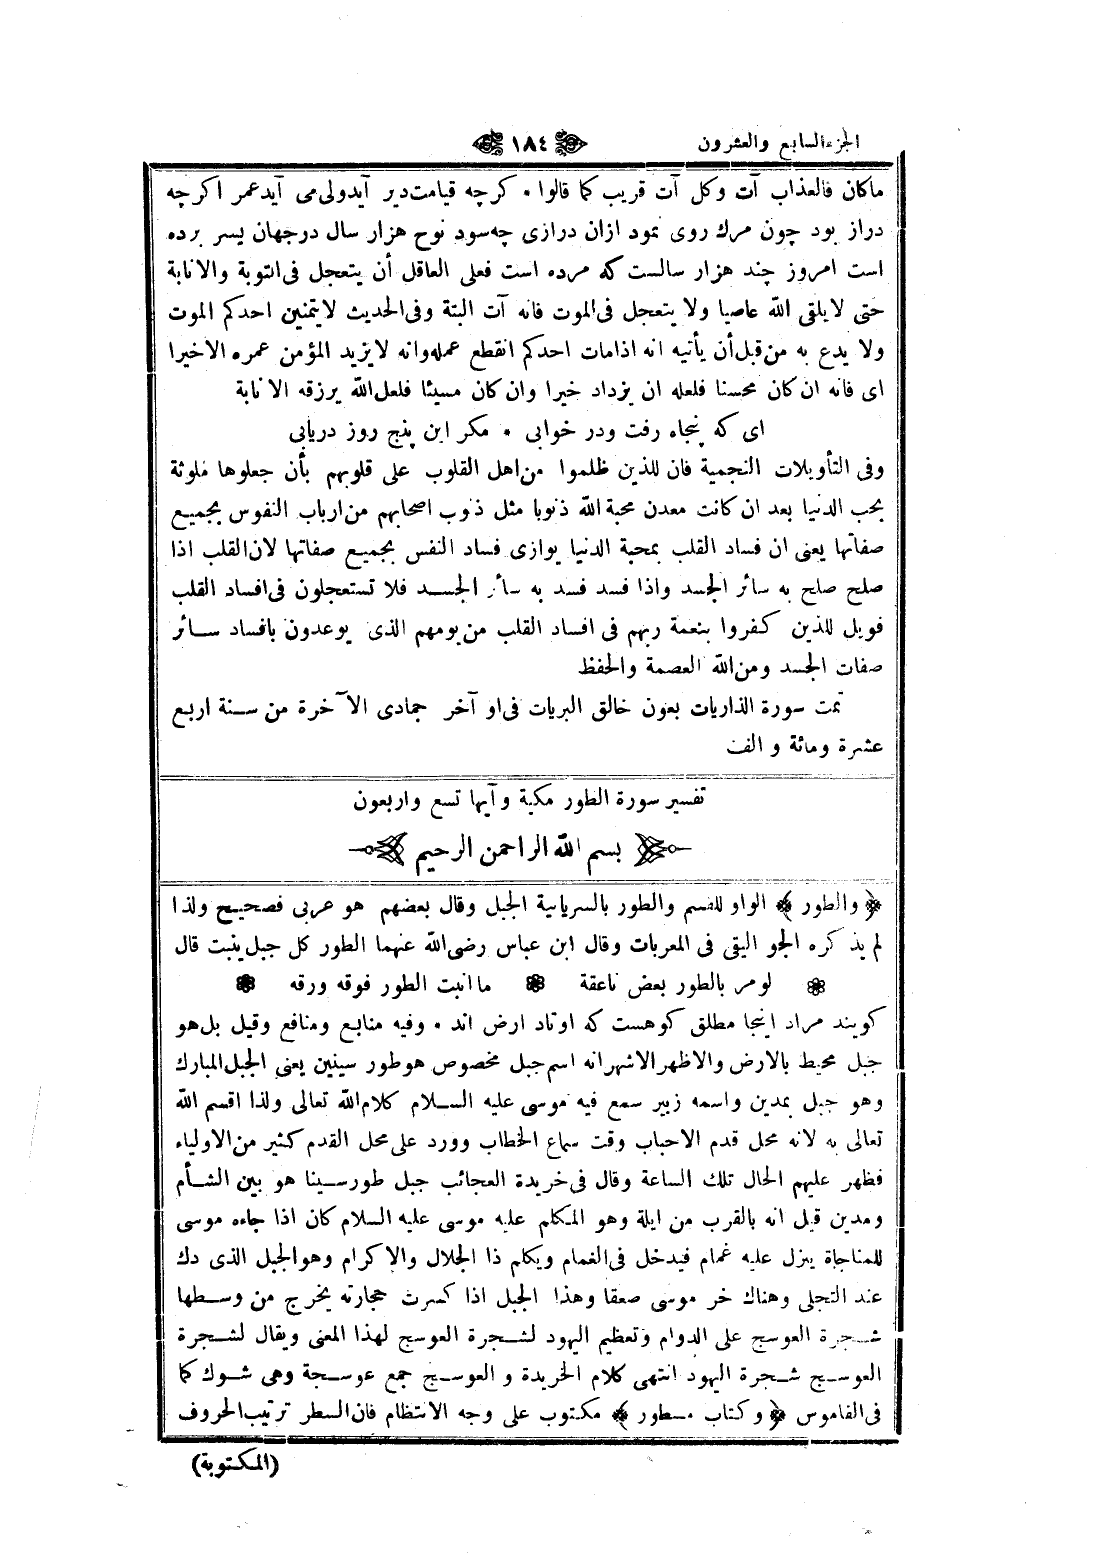 الجزء السابع والعشرون
١٨٤
ماكان فالعذاب آت وكل آت قريب كما قالوا • كرچه قيامت دير آيدولى مى آيد عمر اكرچه
دراز بود چون مرك روى نمود ازان درازى چه سود نوح هزار سال درجهان بسر برده
است امروز چند هزار سالست كه مرده است فعلى العاقل أن يتعجل فى التوبة والانابة
حتى لايلقى الله عاصيا ولا يتعجل فى الموت فانه آت البتة وفى الحديث لايتمنين احدكم الموت
ولا يدع به من قبل أن يأتيه انه اذامات احدكم انقطع عمله وانه لايزيد المؤمن عمره الاخيرا
اى فانه ان كان محسنا فلعله ان يزداد خيرا وان كان مسيئا فلعل الله يرزقه الانابة
اى كه پنجاه رفت ودر خوابى • مكر اين پنج روز دريابى
وفى التأويلات النجمية فان للذين ظلموا من اهل القلوب على قلوبهم بأن جعلوها ملوثة
بحب الدنيا بعد ان كانت معدن محبة الله ذنوبا مثل ذنوب اصحابهم من ارباب النفوس بجميع
صفاتها يعنى ان فساد القلب بمحبة الدنيا يوازى فساد النفس بجميع صفاتها لان القلب اذا
صلح صلح به سائر الجسد واذا فسد فسد به سائر الجسد فلا تستعجلون فى افساد القلب
فويل للذين كفروا بنعمة ربهم فى افساد القلب من يومهم الذى يوعدون بافساد سائر
صفات الجسد ومن الله العصمة والحفظ
تمت سورة الذاريات بعون خالق البريات فى او آخر جمادى الآخرة من سنة اربع
عشرة ومائة و الف
تفسير سورة الطور مكية وآيها تسع واربعون
بسم الله الرحمن الرحيم
﴿ والطور ﴾ الواو للقسم والطور بالسريانية الجبل وقال بعضهم هو عربى فصيح ولذا
لم يذكره الجواليقى فى المعربات وقال ابن عباس رضى الله عنهما الطور كل جبل ينبت قال
لومر بالطور بعض ناعقة ❁ ما انبت الطور فوقه ورقه ❁
كويند مراد اينجا مطلق كوهست كه اوتاد ارض اند • وفيه منابع ومنافع وقيل بل هو
جبل محيط بالارض والاظهر الاشهر انه اسم جبل مخصوص هو طور سينين يعنى الجبل المبارك
وهو جبل بمدين واسمه زبير سمع فيه موسى عليه السلام كلام الله تعالى ولذا اقسم الله
تعالى به لانه محل قدم الاحباب وقت سماع الخطاب وورد على محل القدم كثير من الاولياء
فظهر عليهم الحال تلك الساعة وقال فى خريدة العجائب جبل طورسينا هو بين الشأم
ومدين قيل انه بالقرب من ايلة وهو المكلم عليه موسى عليه السلام كان اذا جاءه موسى
للمناجاة ينزل عليه غمام فيدخل فى الغمام ويكلم ذا الجلال والاكرام وهو الجبل الذى دك
عند التجلى وهناك خر موسى صعقا وهذا الجبل اذا كسرت حجارته يخرج من وسطها
شجرة العوسج على الدوام وتعظيم اليهود لشجرة العوسج لهذا المعنى ويقال لشجرة
العوسج شجرة اليهود انتهى كلام الخريدة و العوسج جمع عوسجة وهى شوك كما
فى القاموس ﴿ وكتاب مسطور ﴾ مكتوب على وجه الانتظام فان السطر ترتيب الحروف
(المكتوبة)